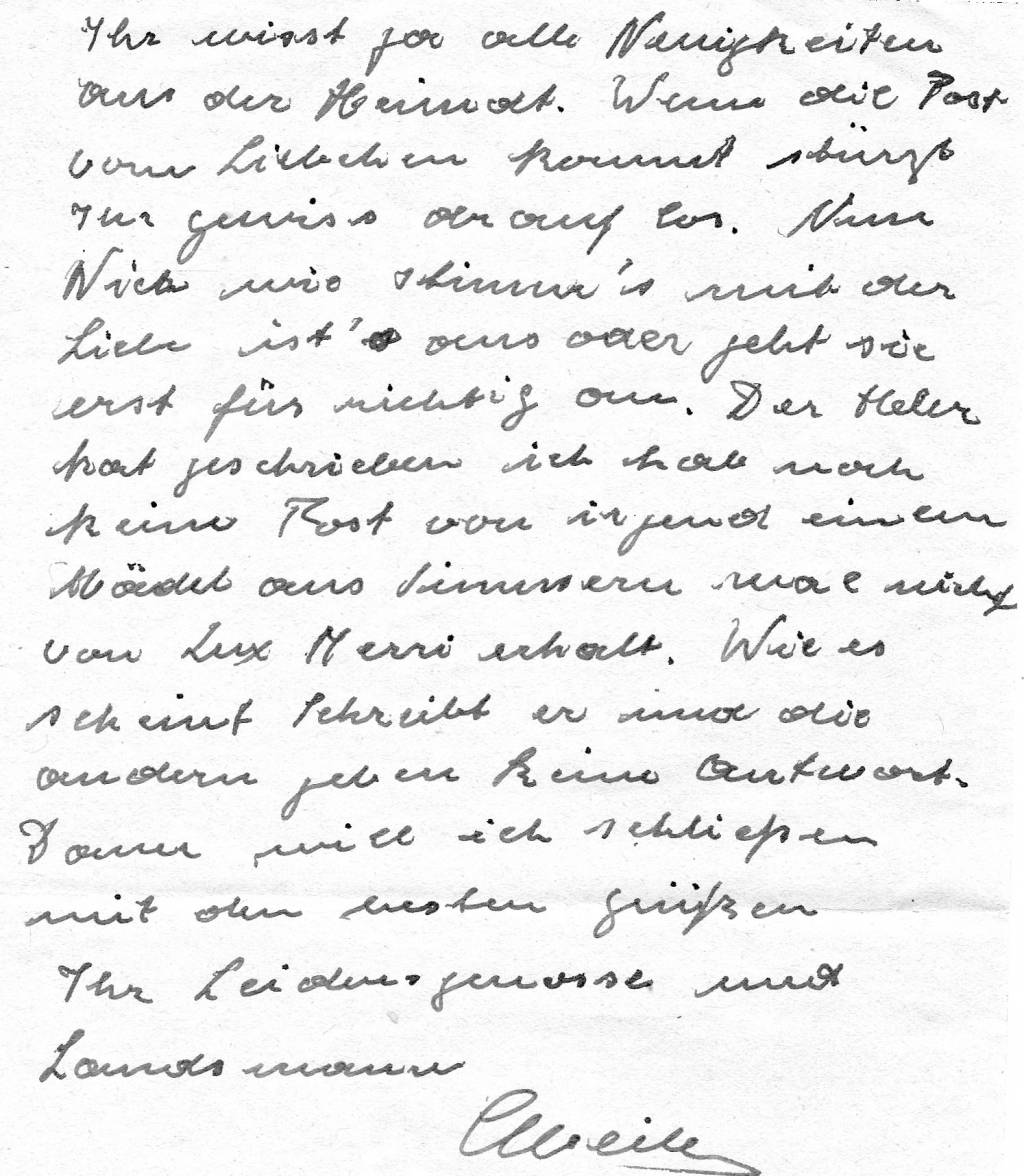 Ihr wisst ja alle Neuigkeiten
aus der Heimat. Wenn die Post
vom Liebchen kommt stürzt
Ihr gewiss darauf los. Nun
Nick wie stimm's mit der
Liebe ist's aus oder geht sie
erst für richtig an. Der
hat geschrieben ich hab noch
keine Post von irgend einem
Mädel aus mal nicht
von Lux Merri erhalt. Wie es
scheint schreibt er und die
andern geben keine Antwort.
Dann will ich schließen
mit den besten Grüßen
Ihr Leidensgenosse und
Landsmann